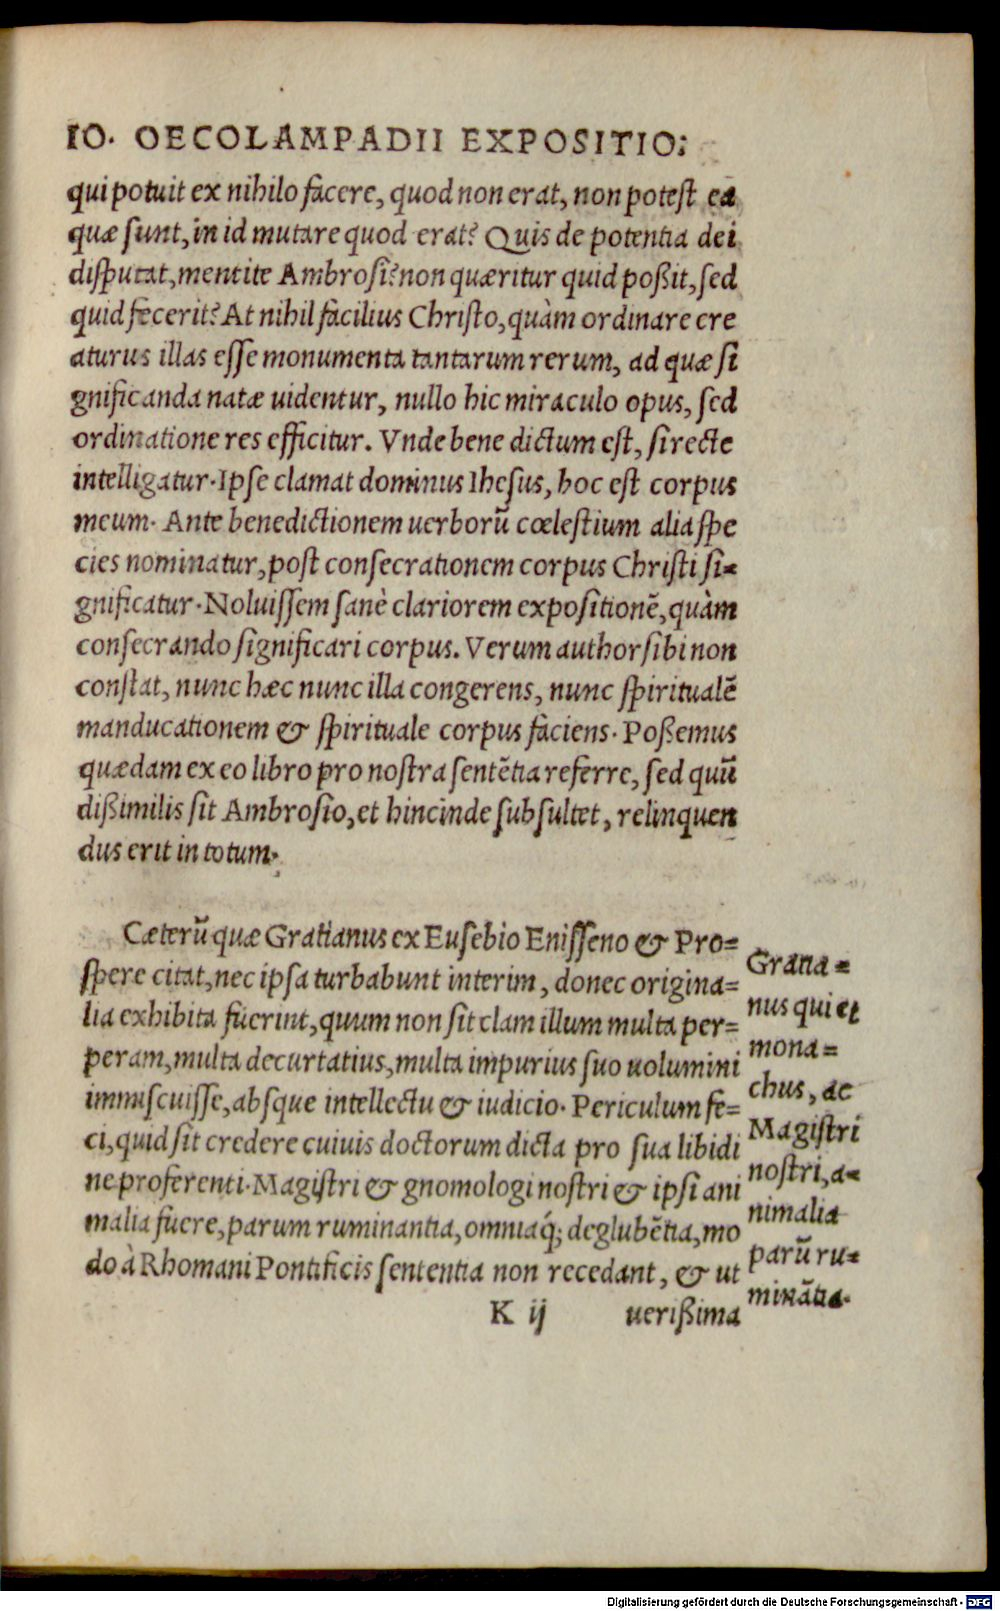 IO. OECOLAMPADII EXPOSITIO;
qui potuit ex nihilo facere, quod non erat, non potest ea
quæ sunt, in id mutare quod erat? Quis de potentia dei
disputat, mentite Ambrosi? non quæritur quid poßit, sed
quid fecerit? At nihil facilius Christo, quàm ordinare cre
aturus illas esse monumenta tantarum rerum, ad quæ si
gnificanda natæ uidentur, nullo hic miraculo opus, sed
ordinatione res efficitur. Vnde bene dictum est, si recte
intelligatur. Ipse clamat dominus Ihesus, hoc est corpus
meum. Ante benedictionem uerborũ cœlestium alia spe
cies nominatur, post consecrationem corpus Christi si=
gnificatur. Noluissem sanè clariorem expositionẽ, quàm
consecrando significari corpus. Verum author sibi non
constat, nunc hæc nunc illa congerens, nunc spiritualẽ
manducationem & spirituale corpus faciens. Poßemus
quædam ex eo libro pro nostra sentẽtia referre, sed quũ
dißimilis sit Ambrosio, et hincinde subsultet, relinquen
dus erit in totum.
Cæterũ quæ Gratianus ex Eusebio Enisseno & Pro=
spere citat, nec ipsa turbabunt interim, donec origina=
lia exhibita fuerint, quum non sit clam illum multa per=
peram, multa decurtatius, multa impurius suo uolumini
immiscuisse, absque intellectu & iudicio. Periculum fe=
ci, quid sit credere cuiuis doctorum dicta pro sua libidi
ne proferenti. Magistri & gnomologi nostri & ipsi ani
malia fuere, parum ruminantia, omniaq́; deglubẽtia, mo
do à Rhomani Pontificis sententia non recedant, & ut
K ij uerißima
Gratia=
nus qui et
mona=
chus, ac
Magistri
nostri, a=
nimalia
parũ ru=
minãtia.
Digitalisierung gefördert durch die Deutsche Forschungsgemeinschaft - DFG